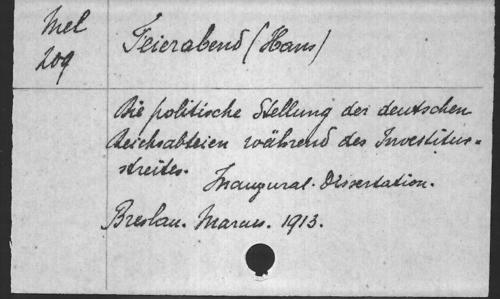 Mel
209
Feierabend (Hans)
Die politische Stellung der deutschen
Reichsabteien während des Investitur=
streites.
Inaugural-Dissertation.
Breslau. Marcus. 1913.